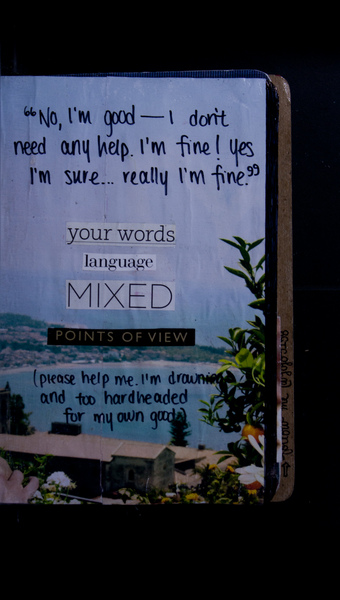 “No, I'm good — I don't
need any help. I'm fine! Yes
I'm sure... really I'm fine.”
your words
language
MIXED
POINTS OF VIEW
(please help me. I'm drowning
and too hardheaded
for my own good.)